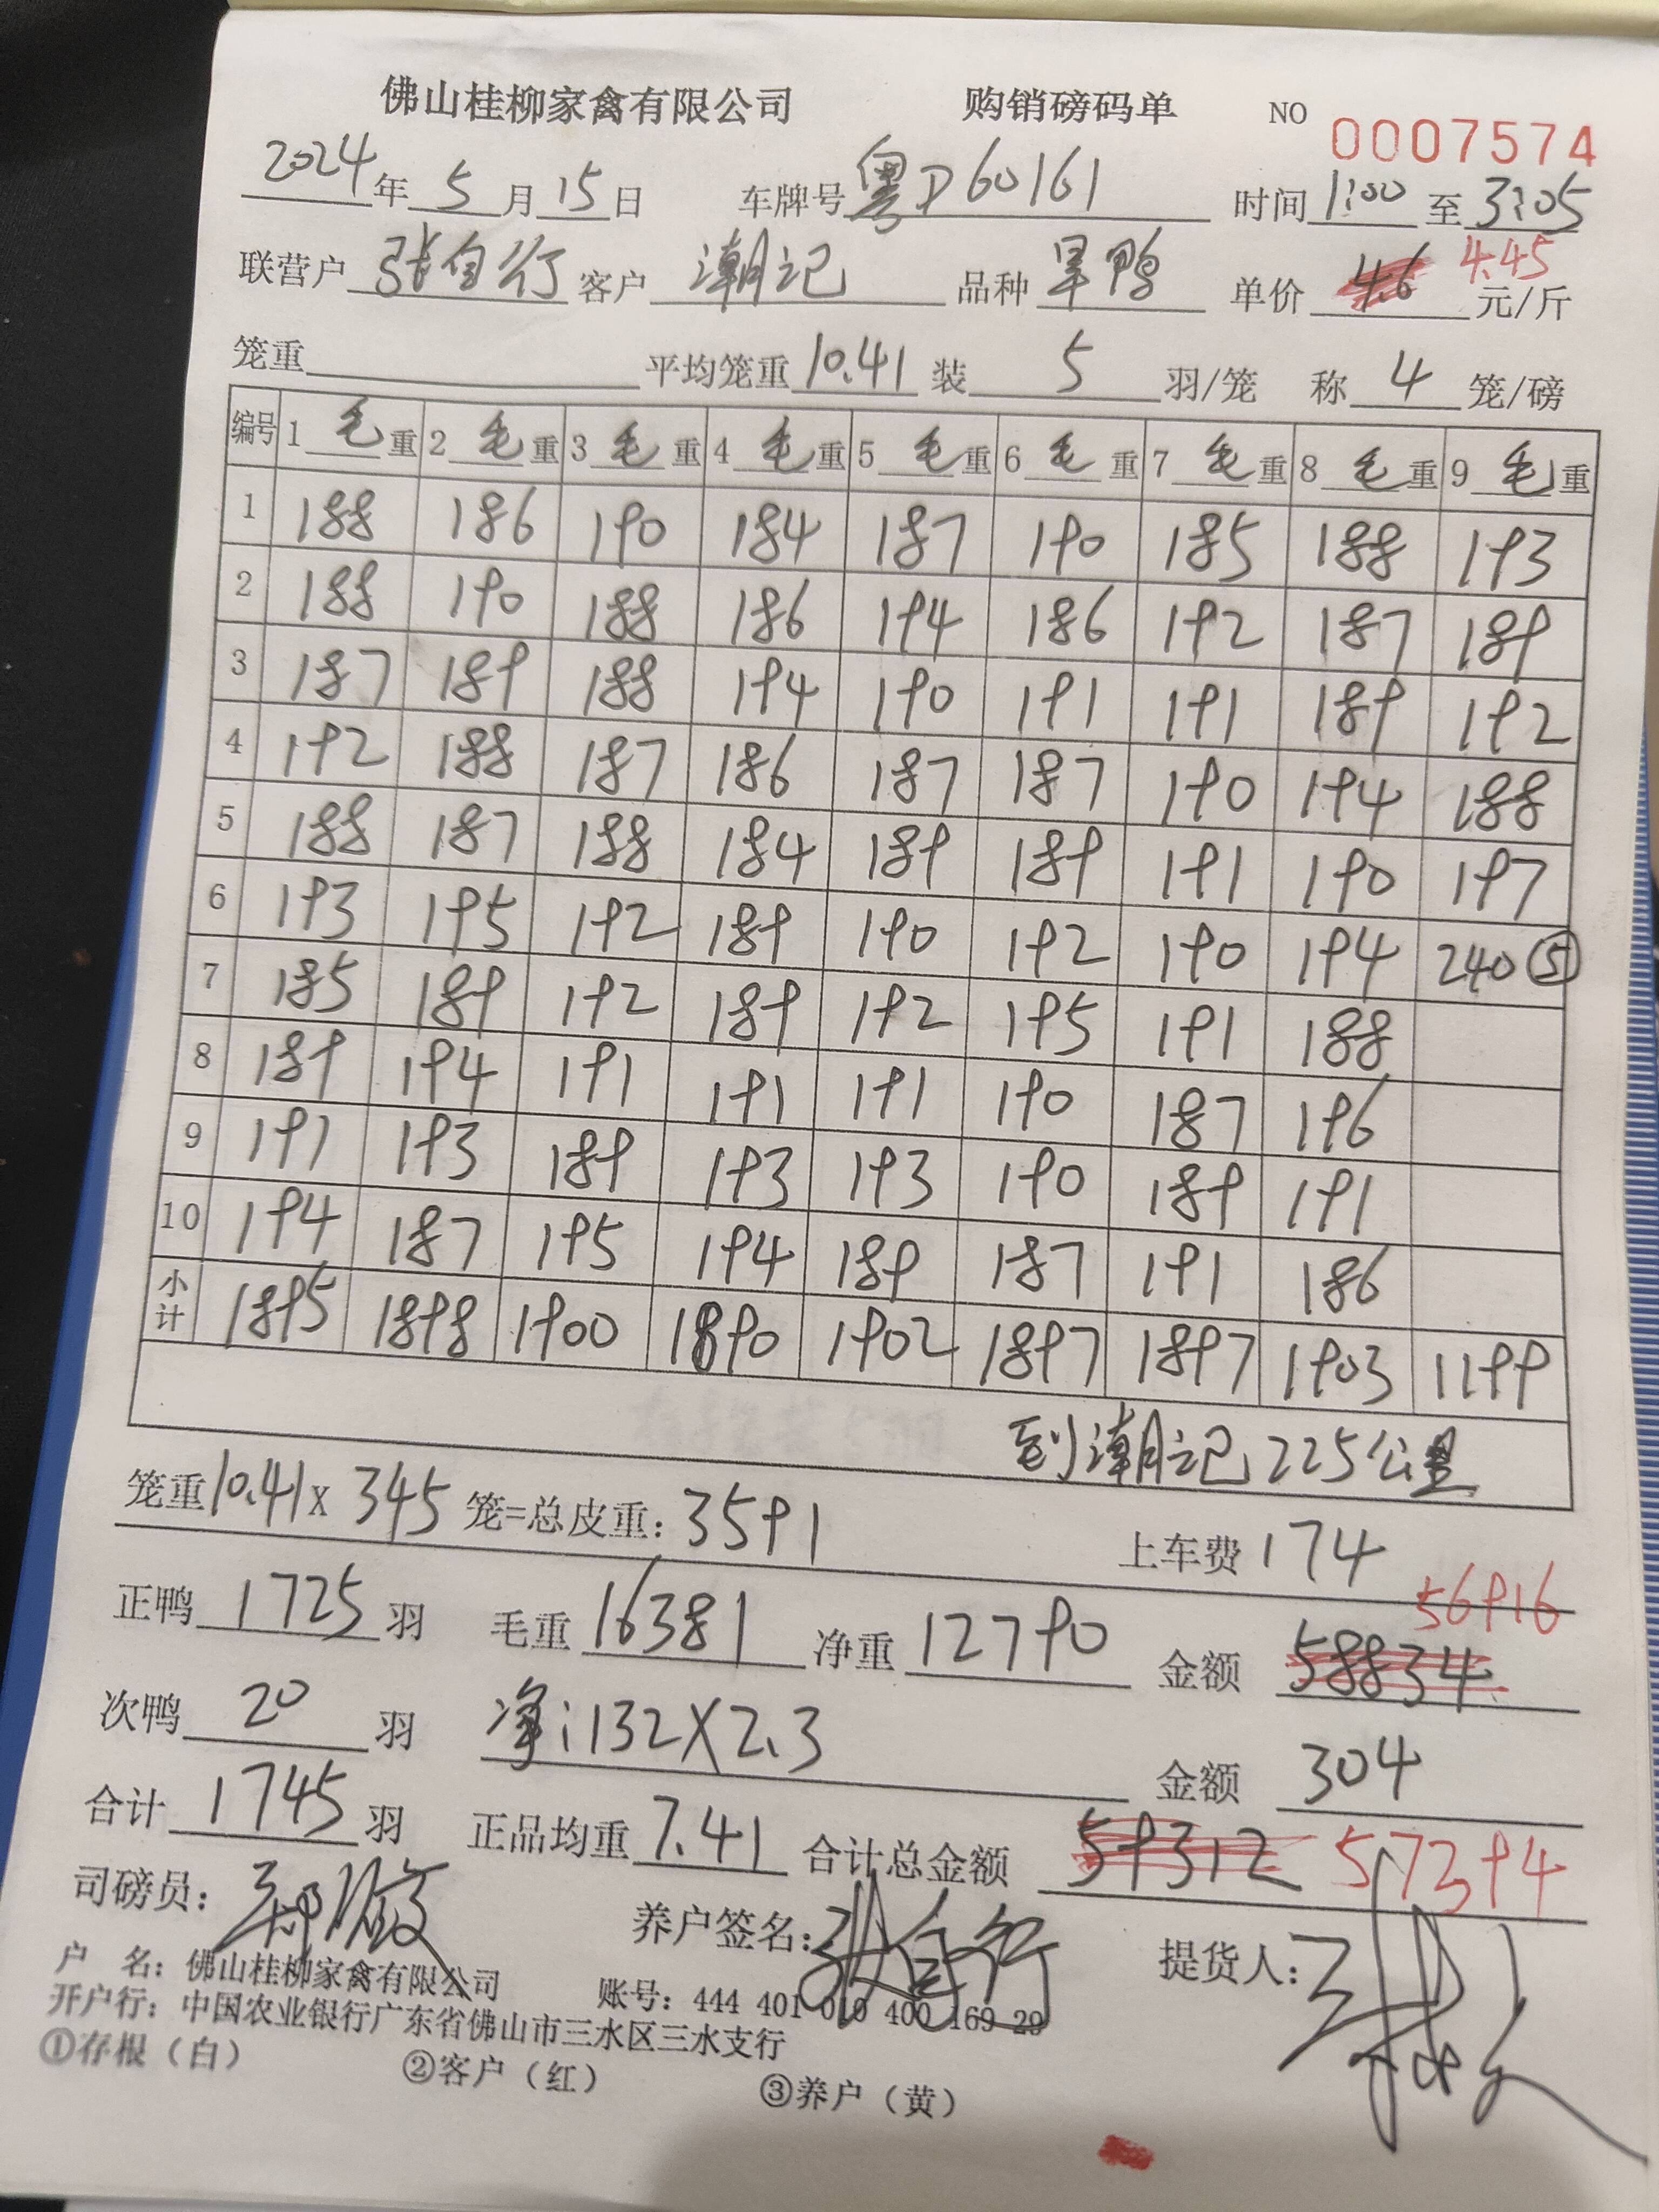 佛山桂柳家禽有限公司 购销磅码单 NO 0007574
2024年 5月15日 车牌号 粤D60161 时间 1:00 至 3:05
联营户 张自行 客户 潮记 品种 旱鸭 单价 4.6 4.45 元/斤
笼重 平均笼重 10.41 装 5 羽/笼 称 4 笼/磅
编号 1 毛重 2 毛重 3 毛重 4 毛重 5 毛重 6 毛重 7 毛重 8 毛重 9 毛重
1 188 186 190 184 187 190 185 188 193
2 188 190 188 186 194 186 192 187 189
3 187 189 188 194 190 191 191 189 192
4 192 188 187 186 187 187 190 194 188
5 188 187 188 184 189 189 191 190 197
6 193 195 192 189 190 192 190 194 240⑤
7 185 189 192 189 192 195 191 188
8 189 194 191 191 191 190 187 196
9 191 193 189 193 193 190 189 191
10 194 187 195 194 189 187 191 186
小计 1895 1898 1900 1890 1902 1897 1897 1903 1199
到潮记225公里
笼重10.41x 345 笼=总皮重: 3591 上车费 174
正鸭 1725 羽 毛重 16381 净重 12790 金额 58834 56916
次鸭 20 羽 净:132X2.3 金额 304
合计 1745 羽 正品均重 7.41 合计总金额 59312 57394
司磅员: 养户签名: 张自行 提货人:
户 名: 佛山桂柳家禽有限公司 账号: 444 401 010 400 169 29
开户行: 中国农业银行广东省佛山市三水区三水支行
①存根(白) ②客户(红) ③养户(黄)